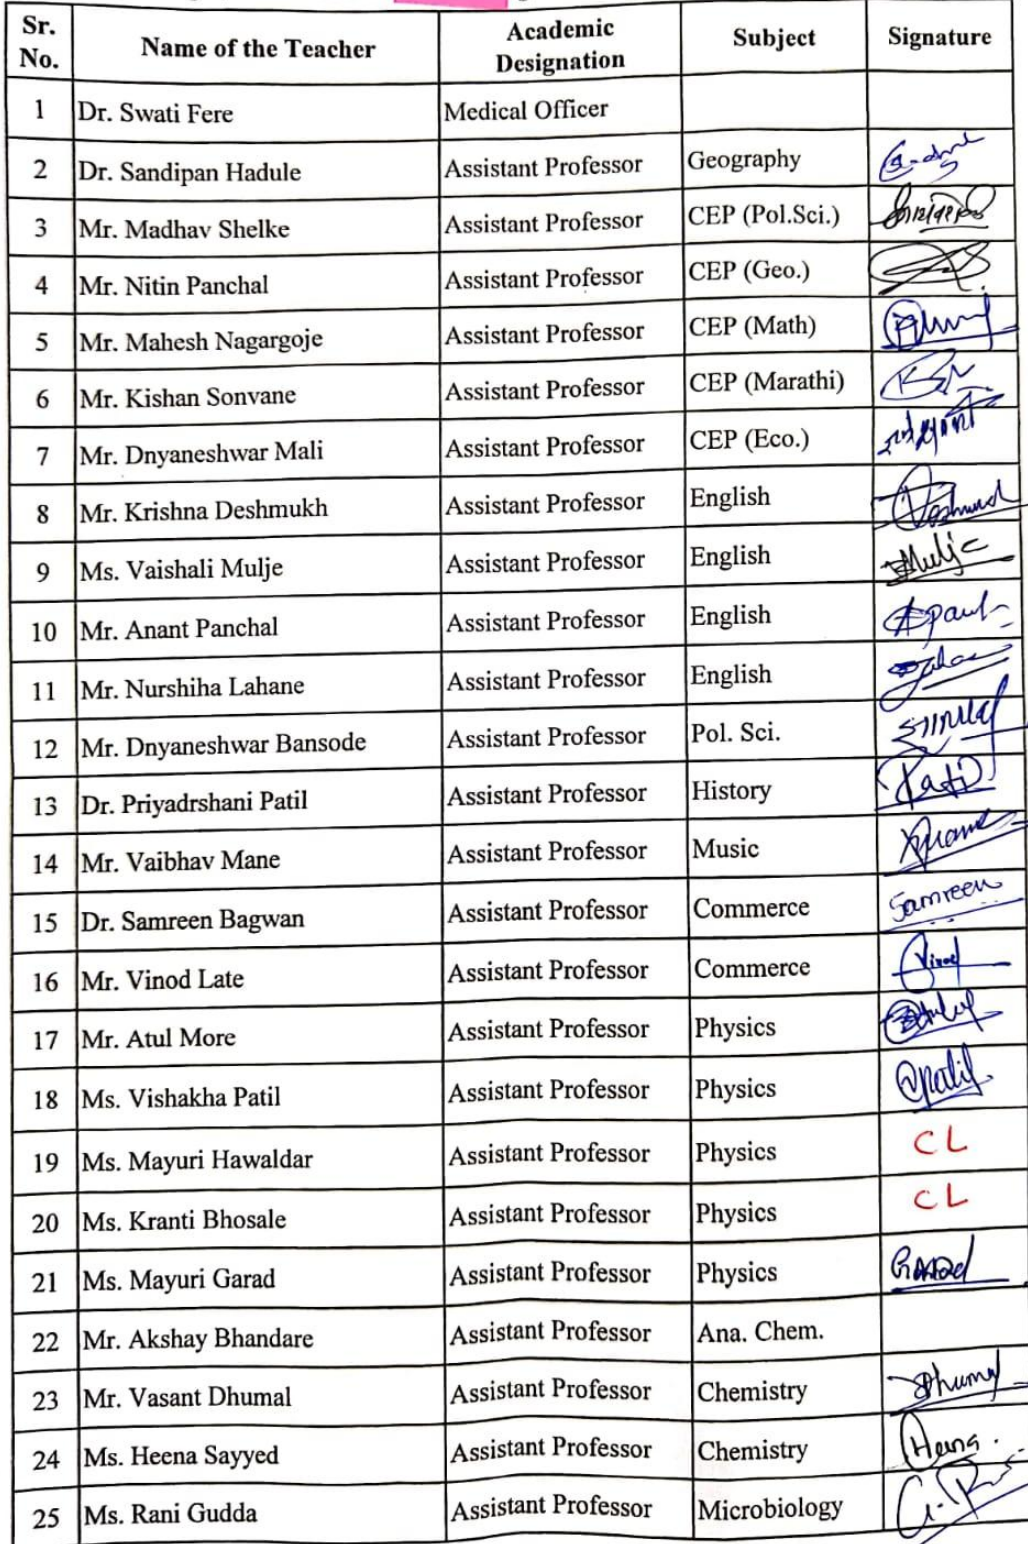 Sr. No. Name of the Teacher Academic Designation Subject Signature
1 Dr. Swati Fere Medical Officer
2 Dr. Sandipan Hadule Assistant Professor Geography
3 Mr. Madhav Shelke Assistant Professor CEP (Pol.Sci.)
4 Mr. Nitin Panchal Assistant Professor CEP (Geo.)
5 Mr. Mahesh Nagargoje Assistant Professor CEP (Math)
6 Mr. Kishan Sonvane Assistant Professor CEP (Marathi)
7 Mr. Dnyaneshwar Mali Assistant Professor CEP (Eco.)
8 Mr. Krishna Deshmukh Assistant Professor English
9 Ms. Vaishali Mulje Assistant Professor English Mulje
10 Mr. Anant Panchal Assistant Professor English
11 Mr. Nurshiha Lahane Assistant Professor English
12 Mr. Dnyaneshwar Bansode Assistant Professor Pol. Sci.
13 Dr. Priyadrshani Patil Assistant Professor History
14 Mr. Vaibhav Mane Assistant Professor Music
15 Dr. Samreen Bagwan Assistant Professor Commerce Samreen
16 Mr. Vinod Late Assistant Professor Commerce Vinod
17 Mr. Atul More Assistant Professor Physics
18 Ms. Vishakha Patil Assistant Professor Physics
19 Ms. Mayuri Hawaldar Assistant Professor Physics CL
20 Ms. Kranti Bhosale Assistant Professor Physics CL
21 Ms. Mayuri Garad Assistant Professor Physics
22 Mr. Akshay Bhandare Assistant Professor Ana. Chem.
23 Mr. Vasant Dhumal Assistant Professor Chemistry
24 Ms. Heena Sayyed Assistant Professor Chemistry Heena
25 Ms. Rani Gudda Assistant Professor Microbiology